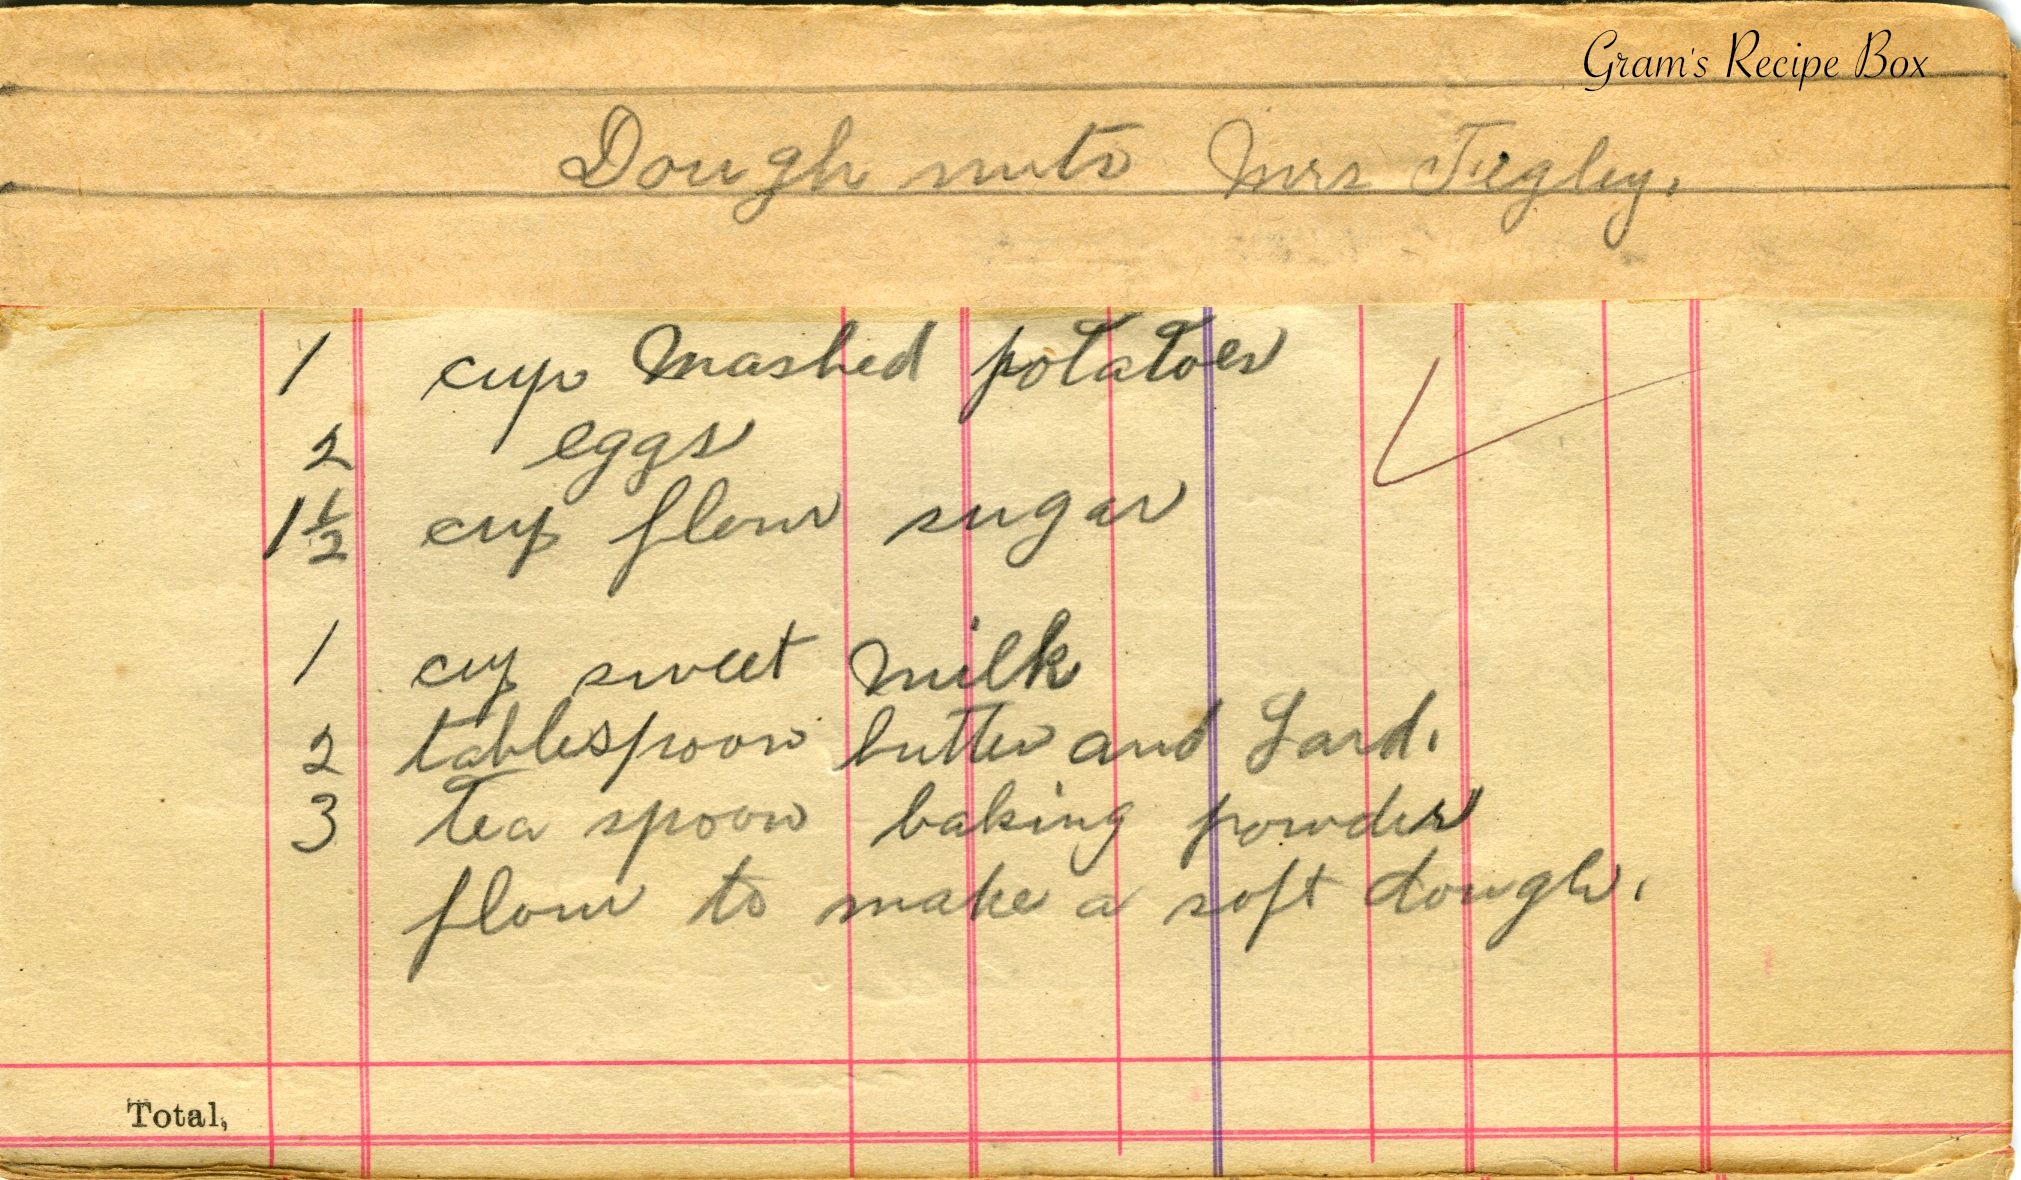 Gram's Recipe Box
Dough nuts Mrs Tegley.
1 cup mashed potatoes
2 eggs
1½ cup flour sugar
1 cup sweet milk
2 tablespoon butter and Lard.
3 tea spoon baking powder
flour to make a soft dough.
Total,